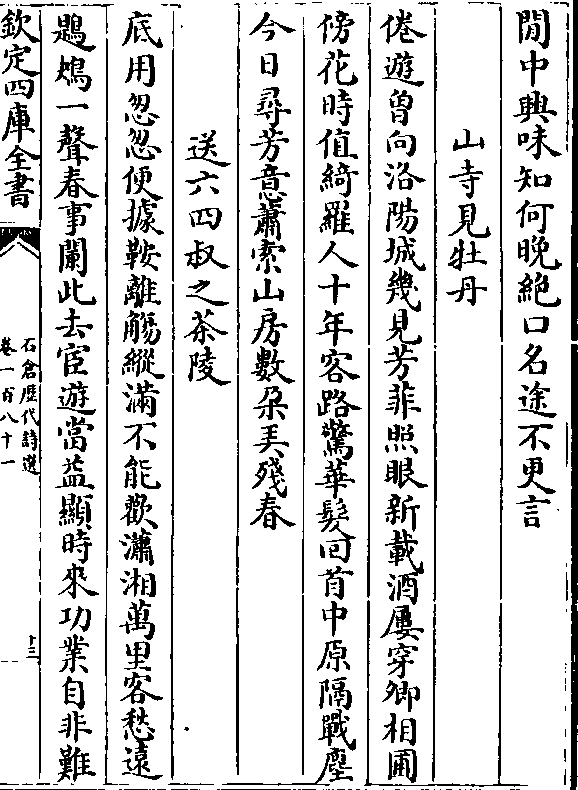 閒中興味知何晚絶口名途不更言
山寺見牡丹
倦遊曾向洛陽城幾見芳菲照眼新載酒屢穿卿相圃
傍花時值綺羅人十年客路驚華髮回首中原隔戰塵
今日尋芳意蕭索山房數朶美殘春
送六四叔之茶陵
底用怱怱便據鞍離觴縱滿不能歡瀟湘萬里客愁遠
鶗鴂一聲春事闌此去宦遊當益顯時來功業自非難
欽定四庫全書
石倉歷代詩選
卷一百八十一
十三